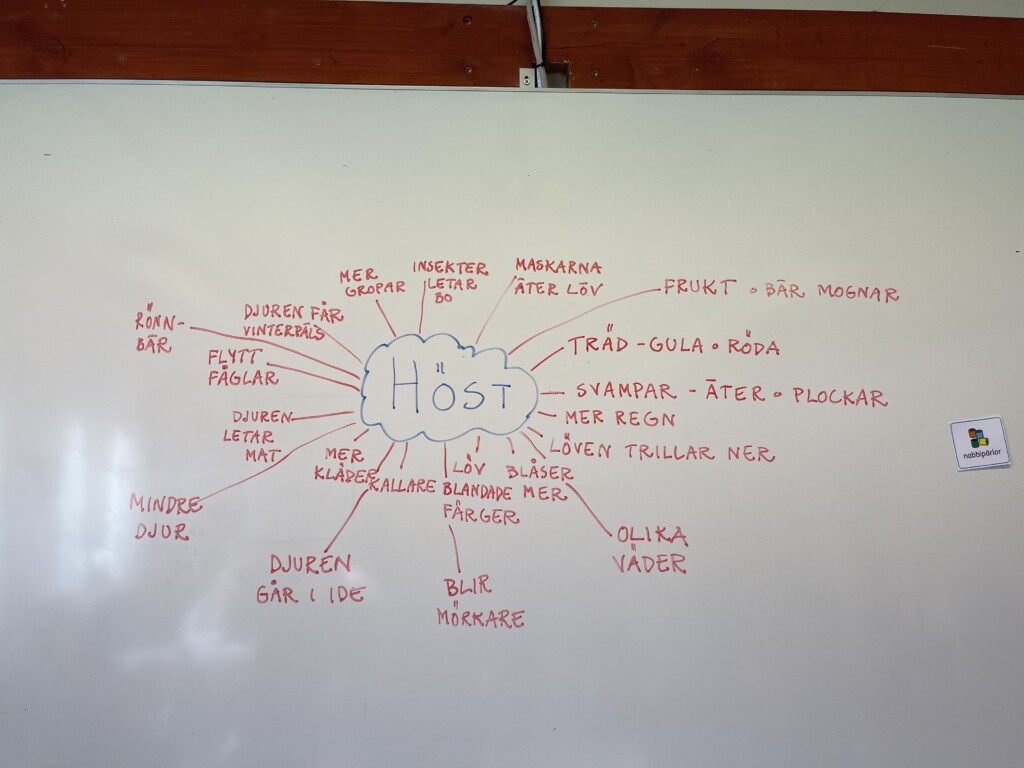 HÖST
MER
GROPAR
INSEKTER
LETAR
BO
MASKARNA
ÄTER LÖV
FRUKT o BÄR MOGNAR
TRÄD - GULA o RÖDA
SVAMPAR - ÄTER o PLOCKAR
MER REGN
LÖVEN TRILLAR NER
OLIKA
VÄDER
BLÅSER
MER
LÖV
BLANDADE
FÄRGER
BLIR
MÖRKARE
KALLARE
DJUREN
GÅR I IDE
MER
KLÄDER
MINDRE
DJUR
DJUREN
LETAR
MAT
FLYTT
FÅGLAR
RÖNN-
BÄR
DJUREN FÅR
VINTERPÄLS
nabbipärlor